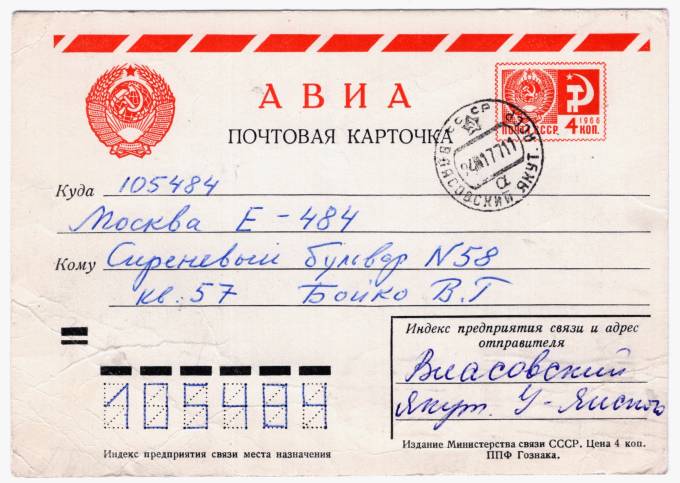 АВИА
ПОЧТОВАЯ КАРТОЧКА
1966
ПОЧТА СССР 4 КОП.
СССР
ВЛАСОВСКИЙ ЯКУТ.
Куда 105484
Москва Е-484
Кому Сиреневый бульвар N58
кв. 57 Бойко В.Г
Индекс предприятия связи и адрес
отправителя
Власовский
Якут. У-Янского
105484
Индекс предприятия связи места назначения
Издание Министерства связи СССР. Цена 4 коп.
ППФ Гознака.